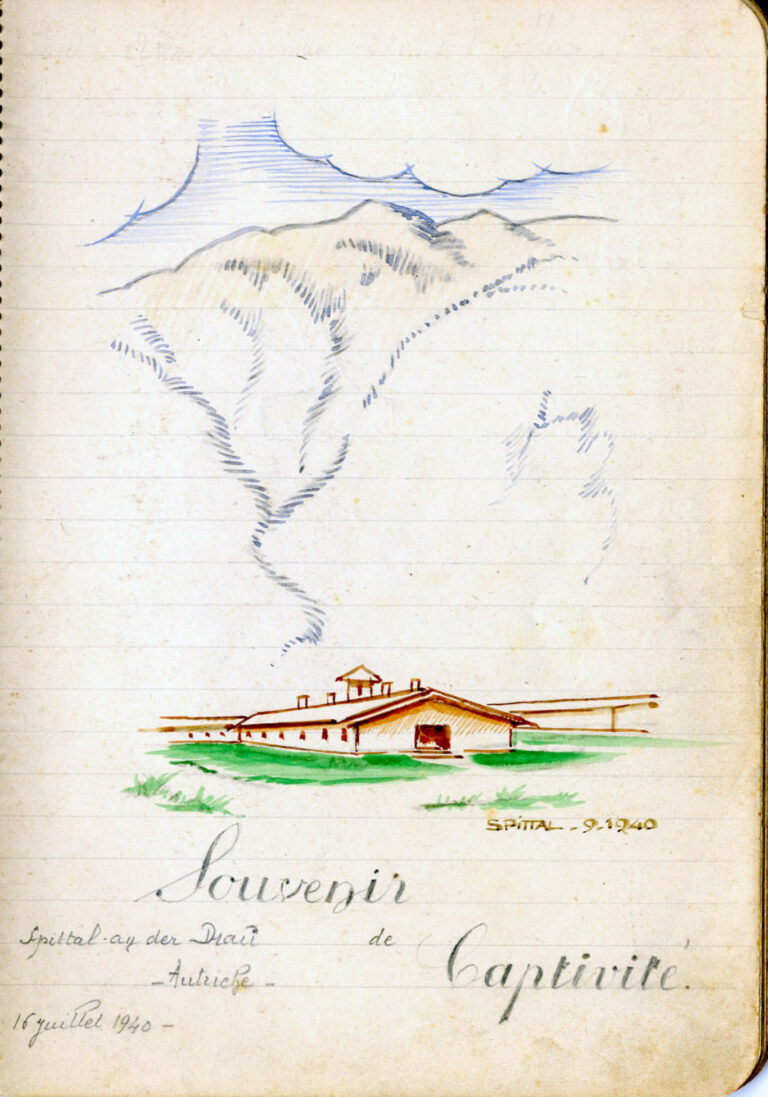 SPITTAL - 9-1940
Souvenir
Spittal-an der Drau de
- Autriche - Captivité.
16 juillet 1940 -